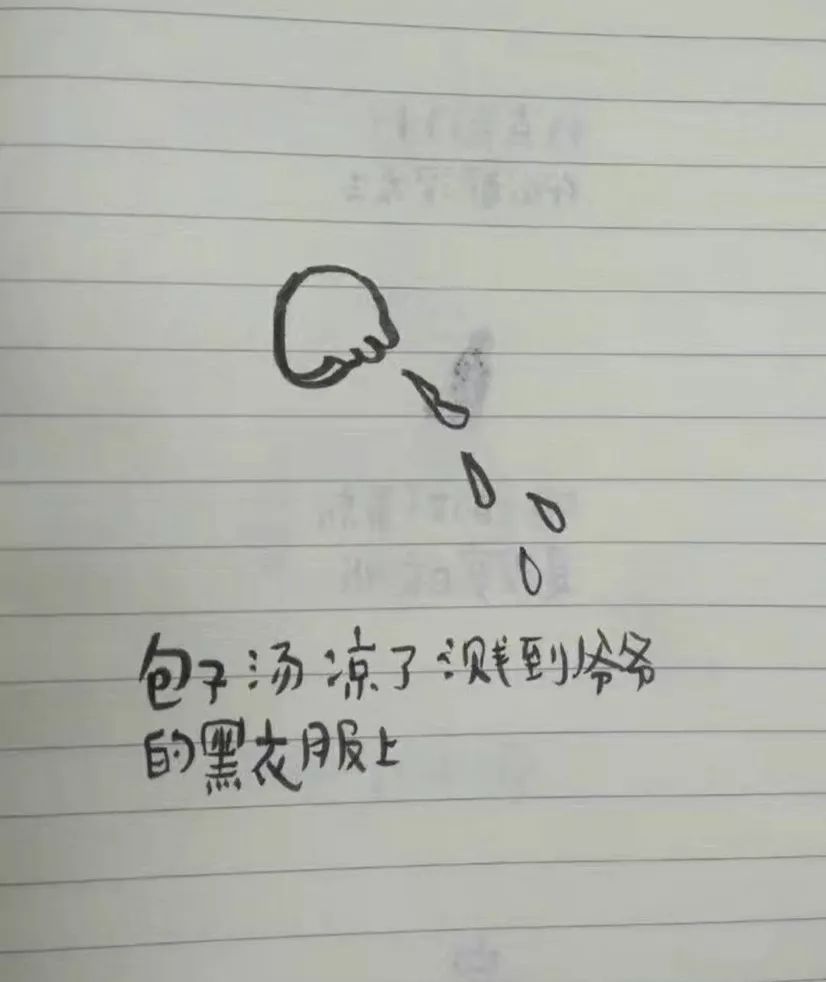 包子汤凉了溅到爷爷
的黑衣服上